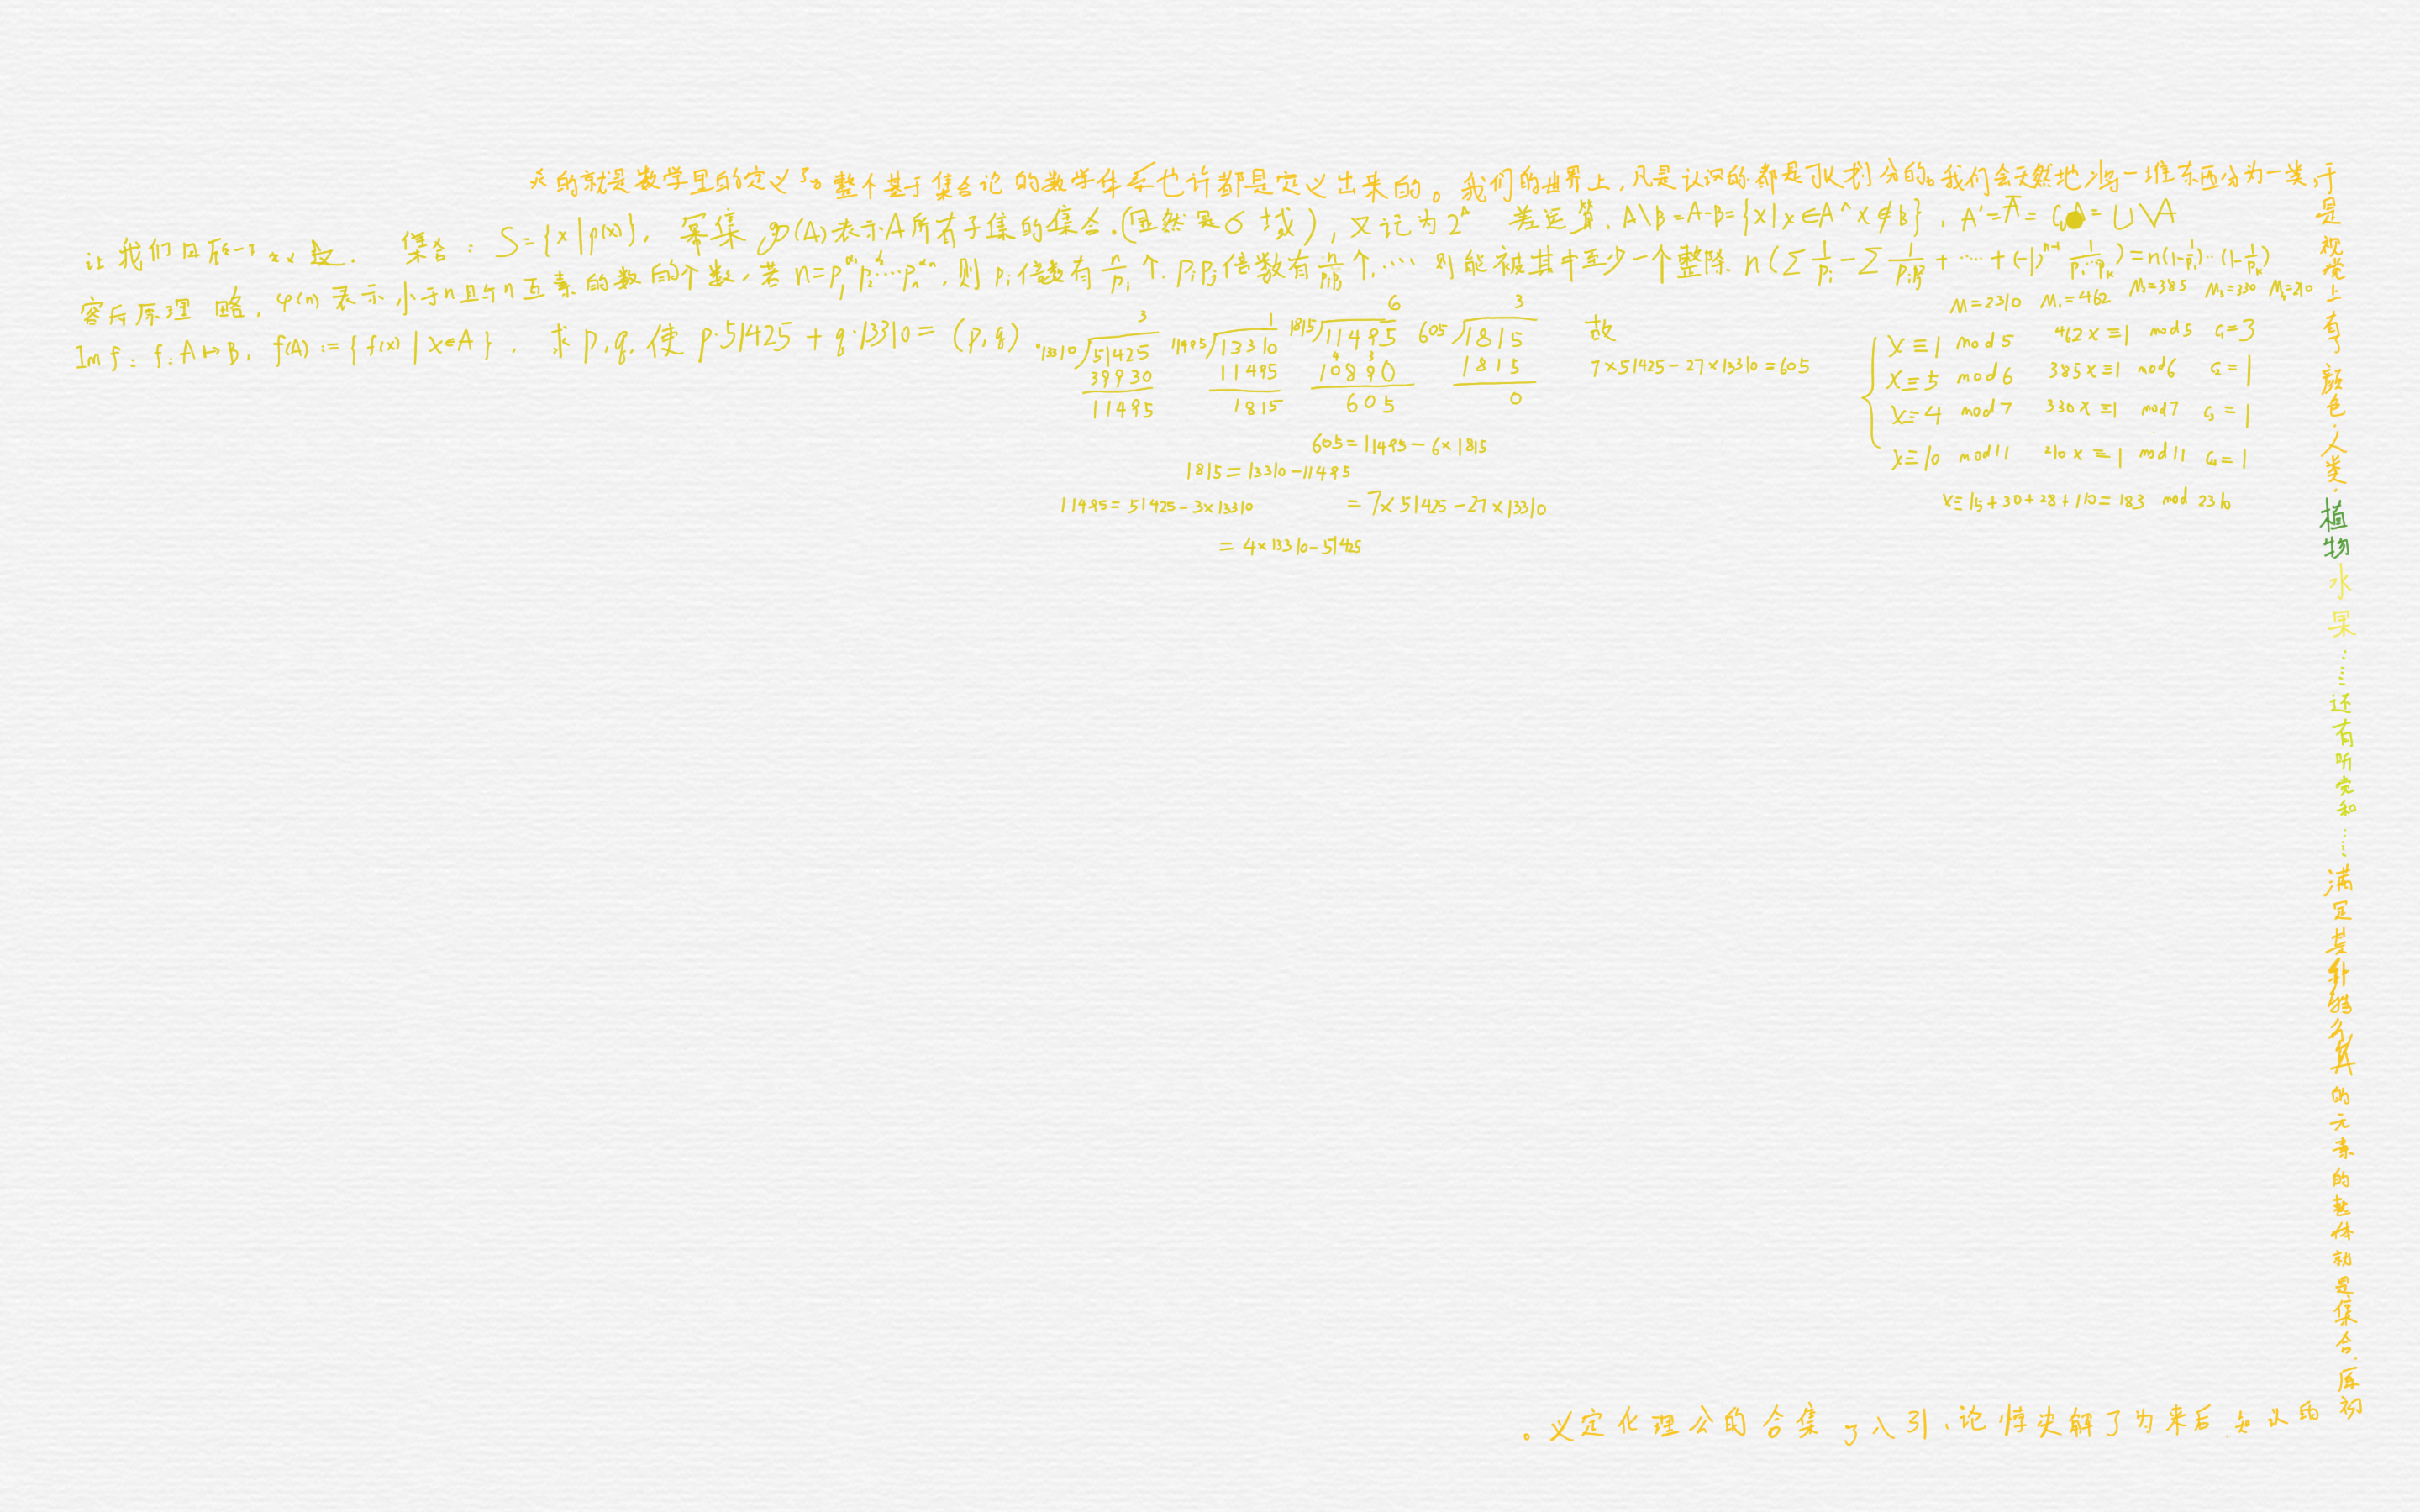 的就是数学里的定义了。整个基于集合论的数学体系也许都是定义出来的。我们的世界上,凡是认识的都是可以划分的。我们会天然地将一堆东西分为一类,于
是视觉上有了颜色.人类.植物水果……还有听觉和……满足某种的元素的整体就是集合.原初
的认知.后来为了解决悖论、引入了集合的公理化定义。
让我们 集合: S={x|p(x)}, 幂集 ℘(A)表示A所有子集的集合.(显然是σ域), 又记为2^A 差运算, A\B=A-B={x|x∈A^x∉B}, A'=Ā= =U\A
容斥原理 略, φ(n)表示小于n且与n互素的数的个数,若 n=p₁^α₁p₂^α₂…pₙ^αₙ,则 pᵢ倍数有 n/pᵢ 个. pᵢpⱼ倍数有 n/pᵢpⱼ 个,…… 则能被其中至少一个整除. n(Σ1/pᵢ-Σ1/pᵢpⱼ+……+(-1)^(n-1) 1/p₁…pₖ)=n(1-1/p₁)…(1-1/pₖ)
Im f: f:A↦B, f(A):={f(x)|x∈A}. 求p,q,使 p·51425+q·13310=(p,q)
3
13310 51425
39930
11495
1
11495 13310
11495
1815
6
1815 11495
10890
605
3
605 1815
1815
0
605=11495-6×1815
1815=13310-11495
11495=51425-3×13310 =7×51425-27×13310
=4×13310-51425
故
7×51425-27×13310=605
M=2310 M₁=462 M₂=385 M₃=330 M₄=210
x≡1 mod5 462x≡1 mod5 c₁=3
x≡5 mod6 385x≡1 mod6 c₂=1
x≡4 mod7 330x≡1 mod7 c₃=1
x≡10 mod11 210x≡1 mod11 c₄=1
x≡15+30+28+110=183 mod 2310